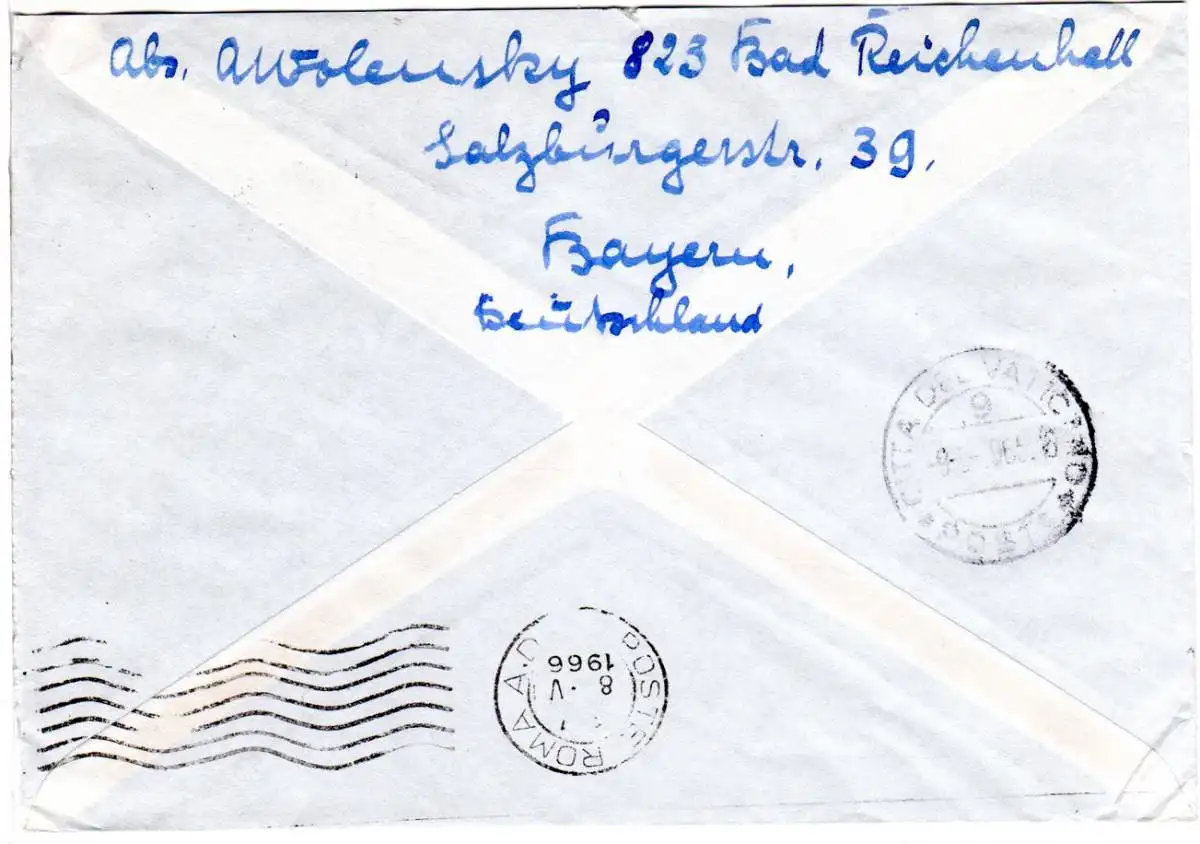 Abs. AWolensky 823 Bad Reichenhall
Salzbürgerstr. 39.
Bayern,
Deütschland
CITTA DEL VATICANO
POSTE
POSTE ROMA A.D
8 . V
1966